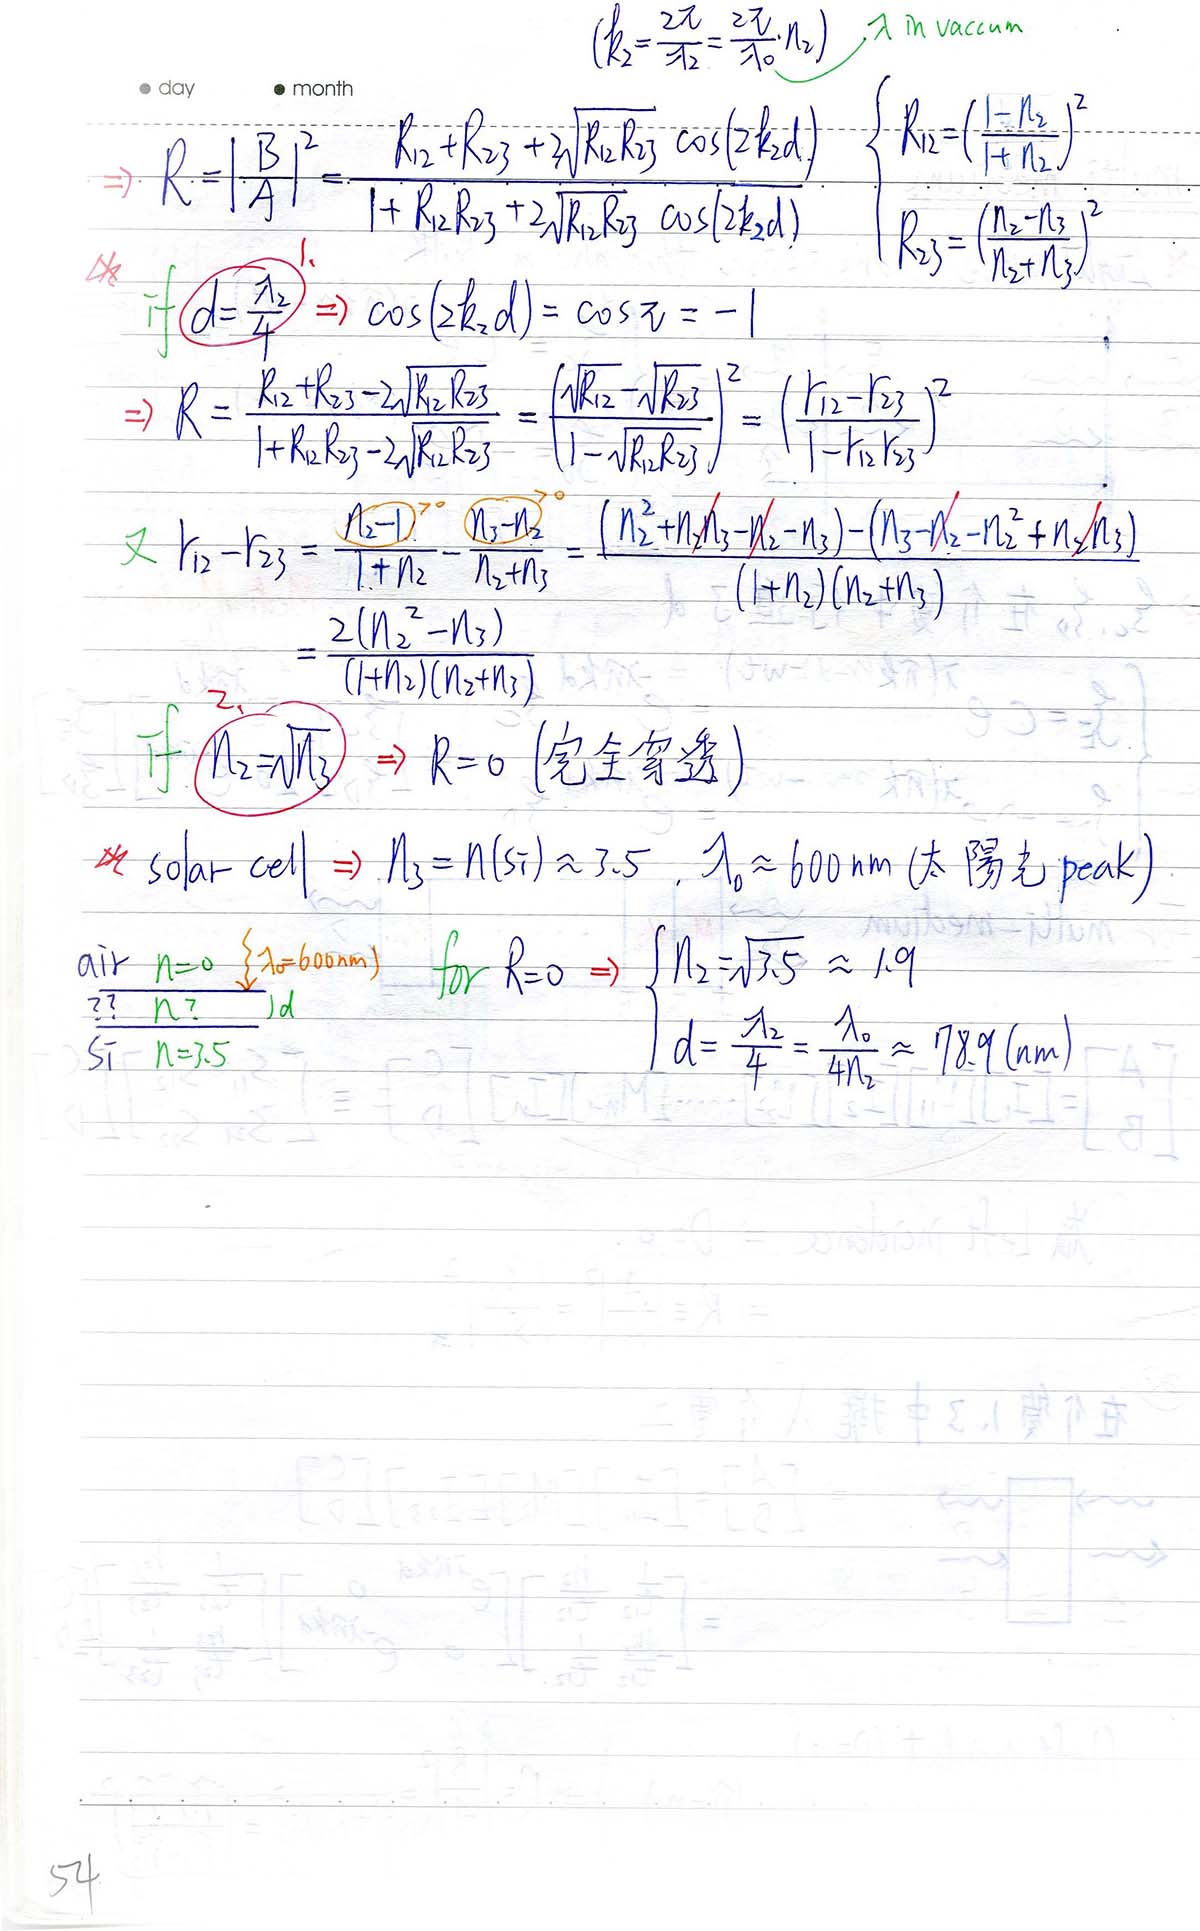 (k₂ = 2π/λ₂ = 2π/λ₀ · n₂) λ in vaccum
● day ● month
⇒ R = |B/A|² = (R₁₂ + R₂₃ + 2√(R₁₂R₂₃) cos(2k₂d)) / (1 + R₁₂R₂₃ + 2√(R₁₂R₂₃) cos(2k₂d)) { R₁₂ = ((1-n₂)/(1+n₂))²
R₂₃ = ((n₂-n₃)/(n₂+n₃))²
※ if d = λ₂/4 1. ⇒ cos(2k₂d) = cosπ = -1
⇒ R = (R₁₂ + R₂₃ - 2√(R₁₂R₂₃)) / (1 + R₁₂R₂₃ - 2√(R₁₂R₂₃)) = ((√R₁₂ - √R₂₃) / (1 - √(R₁₂R₂₃)))² = ((r₁₂ - r₂₃) / (1 - r₁₂r₂₃))²
又 r₁₂ - r₂₃ = (n₂-1)/(1+n₂) - (n₃-n₂)/(n₂+n₃) = ((n₂² + n₂n₃ - n₂ - n₃) - (n₃ - n₂ - n₂² + n₂n₃)) / ((1+n₂)(n₂+n₃)) >0 >0
= 2(n₂² - n₃) / ((1+n₂)(n₂+n₃))
2. if n₂ = √n₃ ⇒ R = 0 (完全穿透)
※ solar cell ⇒ n₃ = n(Si) ≈ 3.5 , λ₀ ≈ 600 nm (太陽光 peak)
air n=0 λ₀=600nm) for R=0 ⇒ { n₂ = √3.5 ≈ 1.9
?? n? )d
Si n=3.5 d = λ₂/4 = λ₀/4n₂ ≈ 78.9 (nm)
54